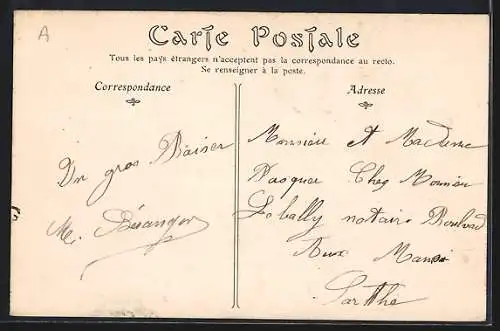 A
Carte Postale
Tous les pays étrangers n'acceptent pas la correspondance au recto.
Ne renseigner à la poste.
Correspondance
Adresse
Un gros Baiser
M. Béranger
Monsieur et Madame
Pasquer Chez Monsieur
Lebally notaire Boulvard
Aux Mans
Sarthe